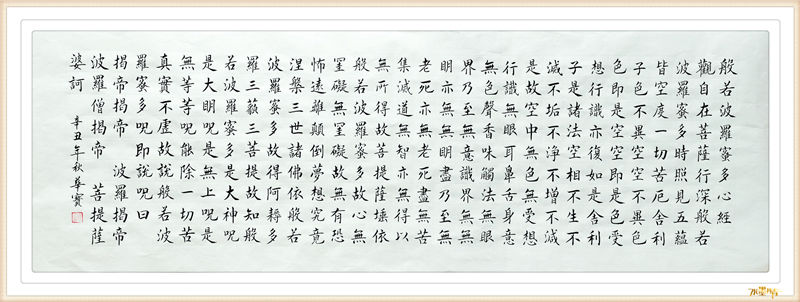 般若波羅蜜多心經
觀自在菩薩行深般若
波羅蜜多時照見五蘊
皆空度一切苦厄舍利
子色不異空空不異色
色即是空空即是色受
想行識亦復如是舍利
子是諸法空相不生不
滅不垢不淨不增不減
是故空中無色無受想
行識無眼耳鼻舌身意
無色聲香味觸法無眼
界乃至無意識界無無
明亦無無明盡乃至無
老死亦無老死盡無苦
集滅道無智亦無得以
無所得故菩提薩埵依
般若波羅蜜多故心無
罣礙無罣礙故無有恐
怖遠離顛倒夢想究竟
涅槃三世諸佛依般若
波羅蜜多故得阿耨多
羅三藐三菩提故知般
若波羅蜜多是大神呪
是大明呪是無上呪是
無等等呪能除一切苦
真實不虛故說般若波
羅蜜多呪即說呪曰
揭帝揭帝 波羅揭帝
波羅僧揭帝 菩提薩
婆訶
辛丑年秋華寳